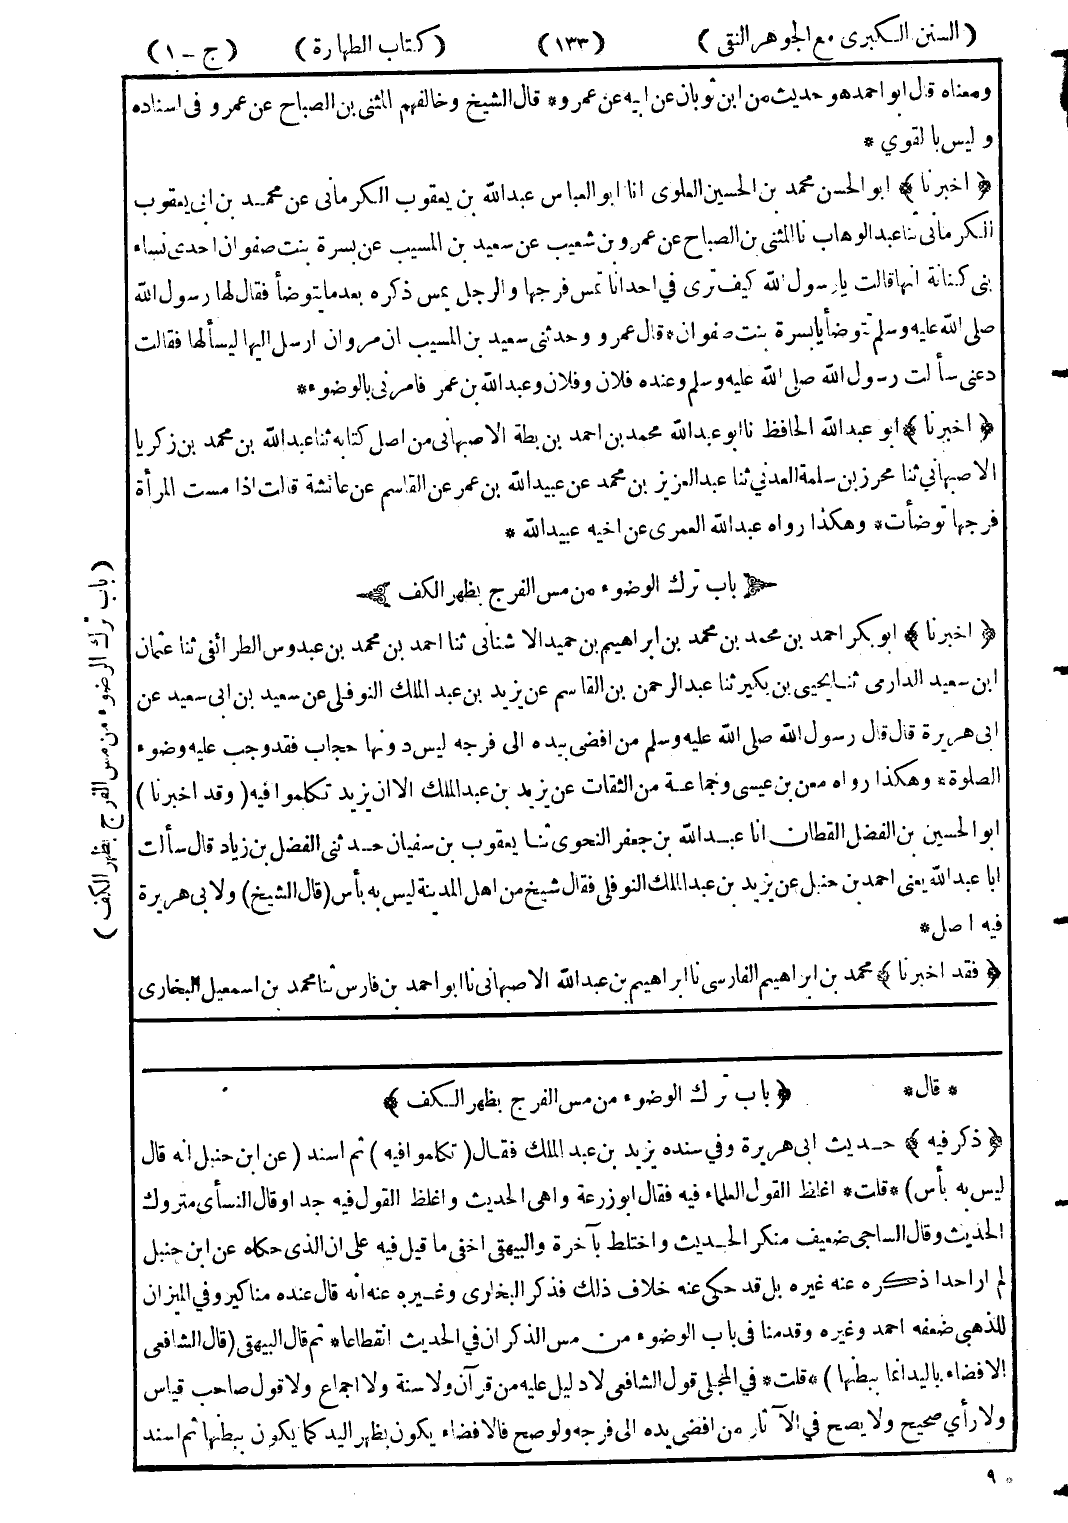 ( السنن الكبرى مع الجوهر النقى ) ( ١٣٣ ) ( كتاب الطهارة ) ( ج – ١ )
ومعناه قال ابو احمد هو حديث من ابن ثوبان عن ابيه عن عمرو * قال الشيخ وخالفهم المثنى بن الصباح عن عمرو فى اسناده
و ليس با لقوي *
﴿ اخبرنا ﴾ ابو الحسن محمد بن الحسين العلوى انا ابو العباس عبدالله بن يعقوب الكرمانى عن محمد بن ابى يعقوب
الكرمانى ثنا عبدالوهاب نا المثنى بن الصباح عن عمرو بن شعيب عن سعيد بن المسيب عن بسرة بنت صفوان احدى نساء
بنى كنانة انها قالت يا رسول الله كيف ترى في احدانا تمس فرجها والرجل يمس ذكره بعد مايتوضأ فقال لها رسول الله
صلى الله عليه وسلم توضأ يا بسرة بنت صفوان * قال عمرو وحدثنى سعيد بن المسيب ان مروان ارسل اليها ليسألها فقالت
دعنى سألت رسول الله صلى الله عليه وسلم وعنده فلان وفلان وعبدالله بن عمر فامرنى بالوضوء *
﴿ اخبرنا ﴾ ابو عبدالله الحافظ نا ابو عبدالله محمد بن احمد بن بطة الاصبهانى من اصل كتابه ثنا عبدالله بن محمد بن زكريا
الاصبهاني ثنا محرز بن سلمة العدني ثنا عبدالعزيز بن محمد عن عبيدالله بن عمر عن القاسم عن عائشة قالت اذا مست المرأة
فرجها توضأت * وهكذا رواه عبدالله العمرى عن اخيه عبيدالله *
باب ترك الوضوء من مس الفرج بظهر الكف
﴿ اخبرنا ﴾ ابو بكر احمد بن محمد بن محمد بن ابراهيم بن حميد الاشنانى ثنا احمد بن محمد بن عبدوس الطرائفى ثنا عثمان
ابن سعيد الدارمى ثنا يحيى بن بكير ثنا عبدالرحمن بن القاسم عن يزيد بن عبد الملك النوفلى عن سعيد بن ابى سعيد عن
ابى هريرة قال قال رسول الله صلى الله عليه وسلم من افضى بيده الى فرجه ليس دونها حجاب فقد وجب عليه وضوء
الصلوة * وهكذا رواه معن بن عيسى وجماعة من الثقات عن يزيد بن عبد الملك الا ان يزيد تكلموا فيه ( وقد اخبرنا )
ابو الحسين بن الفضل القطان انا عبدالله بن جعفر النحوى ثنا يعقوب بن سفيان حدثنى الفضل بن زياد قال سألت
ابا عبدالله يعنى احمد بن حنبل عن يزيد بن عبد الملك النوفلى فقال شيخ من اهل المدينة ليس به بأس ( قال الشيخ ) ولابى هريرة
فيه اصل *
﴿ فقد اخبرنا ﴾ محمد بن ابراهيم الفارسى نا ابراهيم بن عبدالله الاصبهانى نا ابو احمد بن فارس ثنا محمد بن اسمعيل البخارى
( باب ترك الوضوء من مس الفرج بظهر الكف )
* قال * ﴿ باب ترك الوضوء من مس الفرج بظهر الكف ﴾
﴿ ذكر فيه ﴾ حديث ابى هريرة وفي سنده يزيد بن عبد الملك فقال ( تكلموا فيه ) ثم اسند ( عن ابن حنبل انه قال
ليس به بأس ) * قلت * اغلظ القول العلماء فيه فقال ابو زرعة واهى الحديث واغلظ القول فيه جدا وقال النسأى متروك
الحديث وقال الساجى ضعيف منكر الحديث واختلط بآخرة والبيهقى اخفى ما قيل فيه على ان الذى حكاه عن ابن حنبل
لم ار احدا ذكره عنه غيره بل قد حكى عنه خلاف ذلك فذكر البخارى وغيره عنه انه قال عنده مناكير وفي الميزان
للذهبى ضعفه احمد وغيره وقدمنا فى باب الوضوء من مس الذكر ان في الحديث انقطاعا * ثم قال البيهقى ( قال الشافعى
الافضاء باليد انما ببطنها ) * قلت * في المحلى قول الشافعى لا دليل عليه من قرآن ولا سنة ولا اجماع ولا قول صاحب قياس
ولا رأي صحيح ولا يصح في الآثار من افضى بيده الى فرجه ولو صح فالافضاء يكون بظهر اليد كما يكون ببطنها ثم اسند
٩